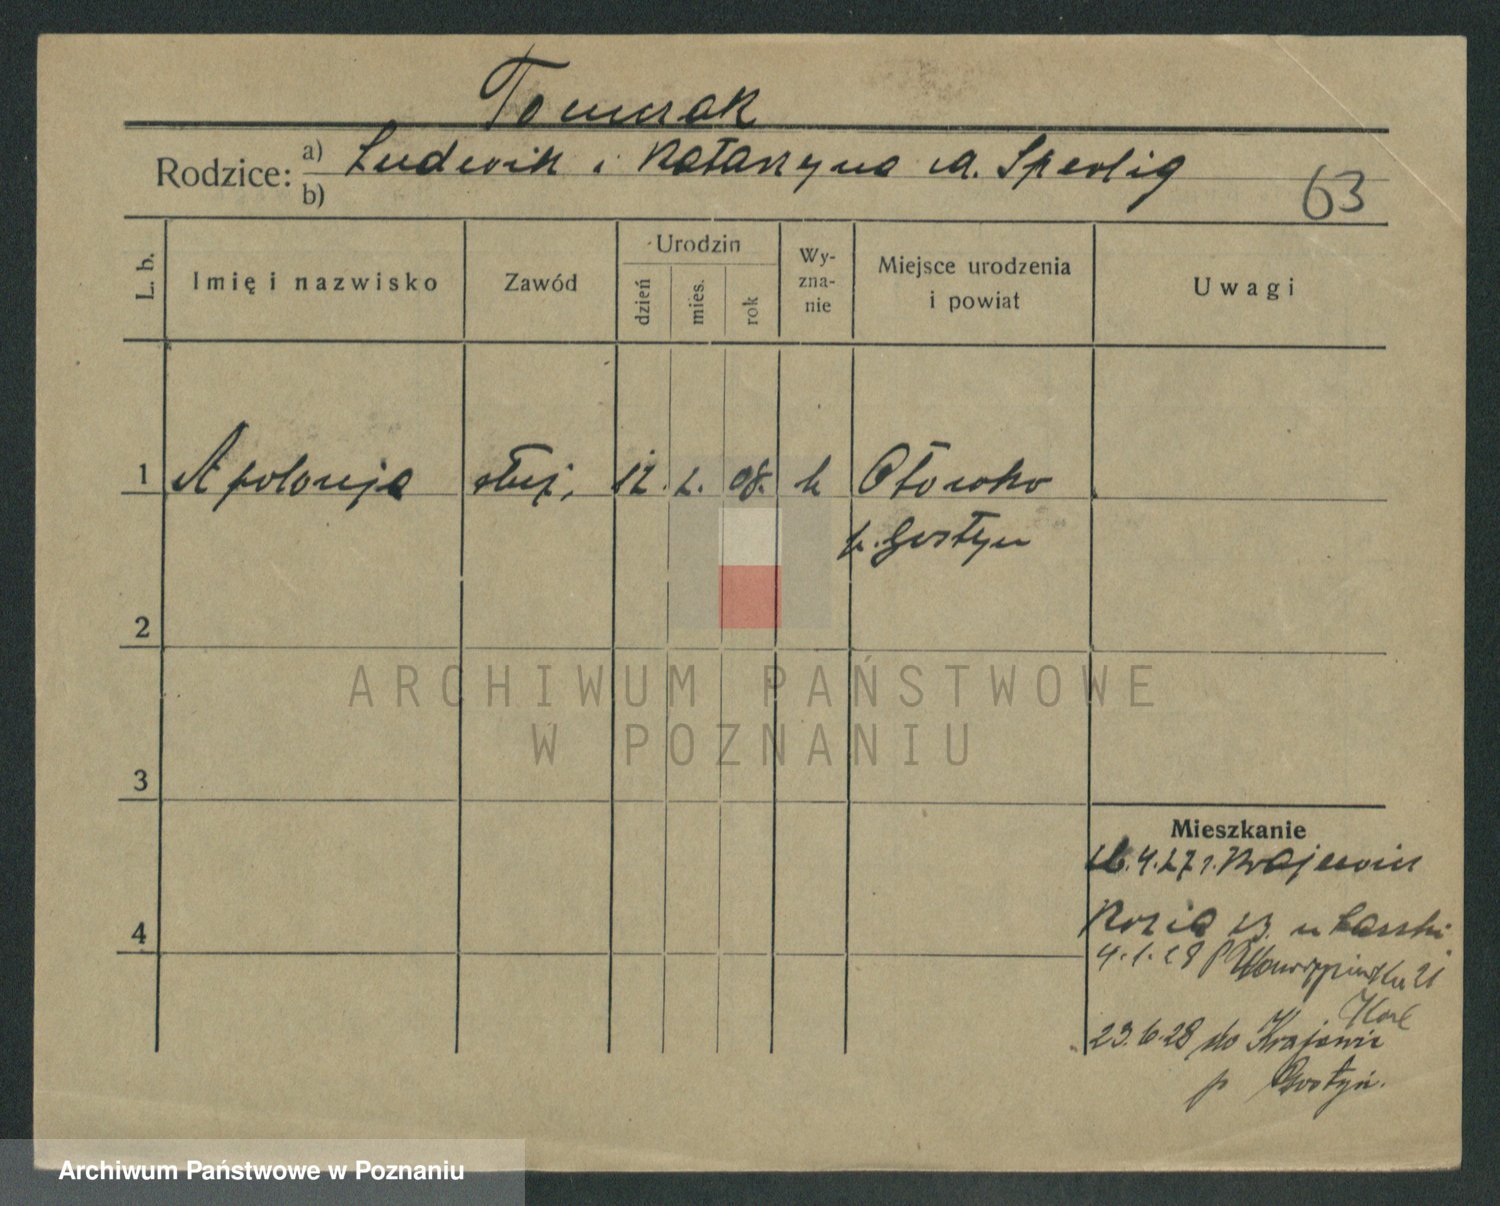 Tomczak
Rodzice: a) Ludwik i Katarzyna
b)
63
L. b.
Imię i nazwisko
Zawód
Urodzin
dzień
mies.
rok
Wy-
zna-
nie
Miejsce urodzenia
i powiat
Uwagi
1 Apolonja służ. 12. 2. 08. k Otówko
p. Gostyń
2
3
4
Mieszkanie
26.4.27 r. Krajewice
Kozia 23.
4.1.28 21
23.6.28 do Krajewic
p Gostyń.
ARCHIWUM PAŃSTWOWE
W POZNANIU
Archiwum Państwowe w Poznaniu